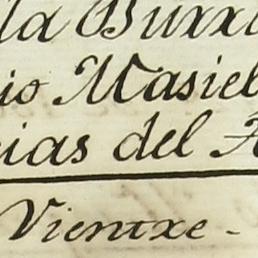 la Burr
io Masiel
cias del A
Vientre -